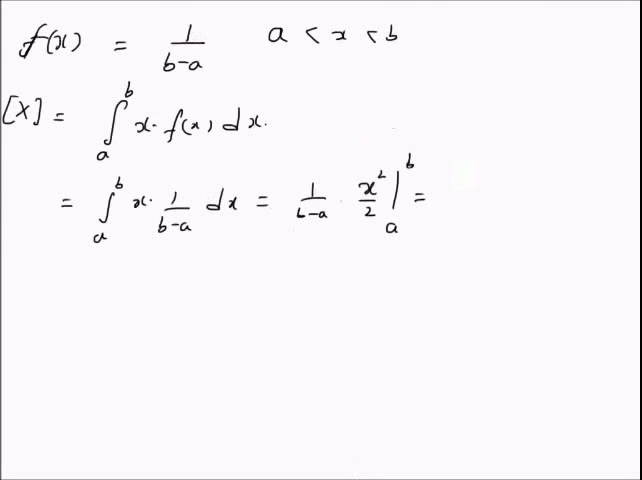 f(x) = 1/(b-a) a < x < b
[X] = ∫_a^b x· f(x) dx.
= ∫_a^b x· 1/(b-a) dx = 1/(b-a) · x²/2 |_a^b =